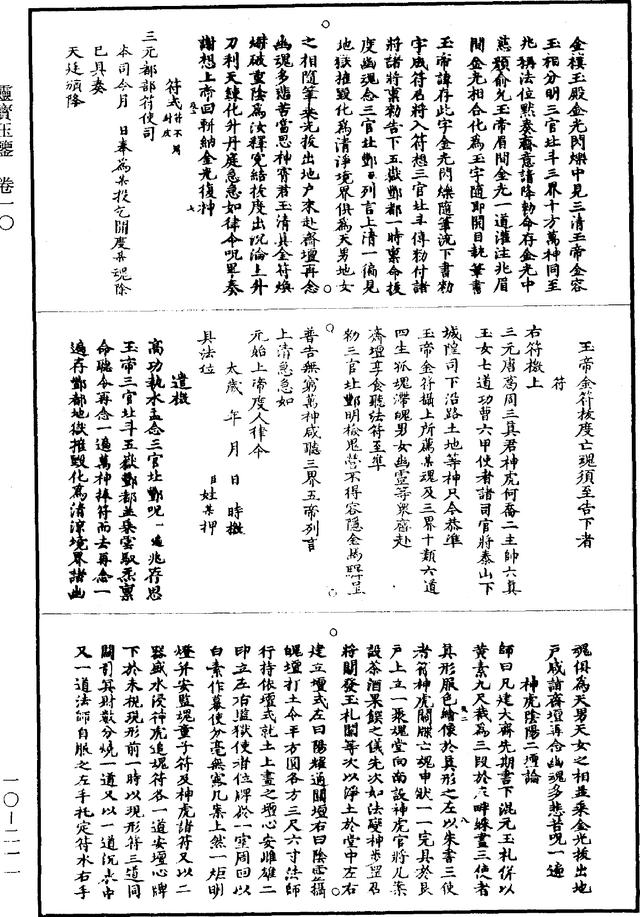 金樓玉殿金光閃爍中見三清玉帝金容
玉相分明三官北斗三界十方萬神同至
兆稱法位默奏齋意請降勅命存金光中
慈顏俞允玉帝眉間金光一道灌注兆眉
間金光相合化為玉字隨即開目執筆書
玉帝諱存此字金光閃爍隨筆流下書勅
字成符召將入符想三官北斗傳勅付諸
將諸將稟勅告下五嶽酆都一時稟命拔
度幽魂念三官北酆曰列言上清一徧見
地獄摧毀化為清淨境界俱為天男地女
之相隨筆乘光拔出地户來赴齋壇再念
幽魂多悲苦當思神霄君玉清真全符煥
破重陰為汝釋冤結拔度出沉淪上升
刀利天鍊化升丹庭急急如律令呪畢奏
謝想上帝回軿納金光復神
符式
三元都部符使司
本司今月 日奉為某投乞開度某魂除
已具奏
天廷頒降
靈寶玉鑒 卷一〇
玉帝金符拔度亡魂須至告下者
符
右符檄上
三元唐葛周三真君神虎何喬二主帥六真
玉女七道功曹六甲使者諸司官將泰山下
城隍司下沿路土地等神只今恭準
玉帝金符攝上所薦某魂及三界十類六道
四生孤魂滯魄男女幽靈等衆齊赴
齋壇享食聽法符至準
勅三官北酆明檢鬼營不得容隱金馬驛呈
普告無窮萬神咸聽三界五帝列言
上清急急如
元始上帝度人律令
太歲 年 月 日 時檄
具法位 姓某押
遣檄
高功執水盂念三官北酆呪一遍兆存思
玉帝三官北斗五嶽酆都並乘雲馭炁稟
命聽令再念一遍萬神捧符而去再念一
遍存酆都地獄摧毀化為清涼境界諸幽
魂俱為天男天女之相並乘金光拔出地
户咸詣齋壇再念幽魂多悲苦呪一遍
神虎陰陽二壇論
師曰凡建大齋先期書下混元玉札併以
黄素九尺裁為三段於
真形服色繪像於真形之左以朱書三使
者符神虎關牒亡魂申狀一一完具於艮
户上立一聚魂堂向南設神虎官將几案
設茶酒果饌之儀先次如法變神步罡召
將關發玉札關等次以淨土於堂中左右
建立壇式左曰陽耀通關壇右曰陰雲攝
魄壇打土令平方圓各方三尺六寸法師
行持依壇式就土上畫之壇心安雌雄二
印立左右監獄使者位牌於一室周回以
白素作幕使分毫無露几案上然一炬明
燈并安監魂童子符及神虎諸符又以二
器盛水浸神虎追魂符各一道安壇心牌
下於未棁現形前一時以現形符三道同
關引冥財散分燒一道又以一道沉水中
又一道法師自服之左手托定符水右手
一〇—二一一